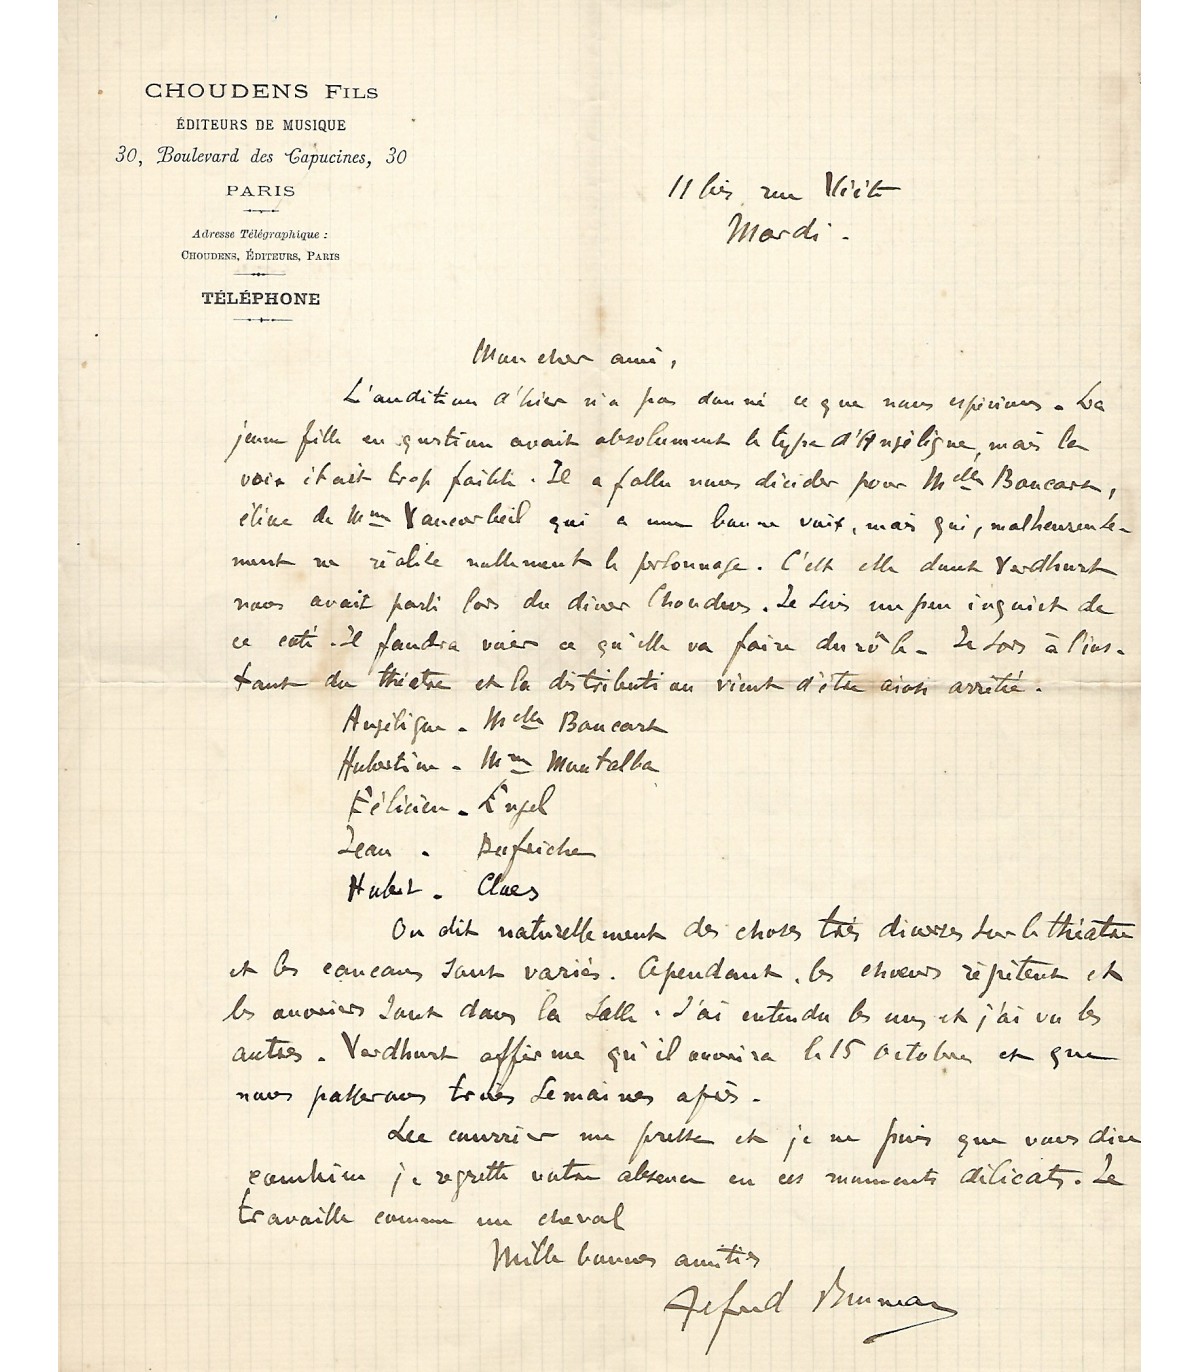 CHOUDENS FILS
ÉDITEURS DE MUSIQUE
30, Boulevard des Capucines, 30
PARIS
Adresse Télégraphique :
CHOUDENS, ÉDITEURS, PARIS
TÉLÉPHONE
11 bis rue Viète
Mardi.
Mon cher ami,
L'audition d'hier n'a pas donné ce que nous espérions. La
jeune fille en question avait absolument le type d'Angélique, mais la
voix était trop faible. Il a fallu nous décider pour Melle Boucart,
élève de Mme Vaucorbeil qui a une bonne voix, mais qui, malheureuse-
ment ne réalise nullement le personnage. C'est elle dont Verdhurt
nous avait parlé lors du diner Choudens. Je suis un peu inquiet de
ce coté. Il faudra voir ce qu'elle va faire du rôle. Je sors à l'ins-
tant du théâtre et la distribution vient d'être ainsi arrêtée.
Angélique - Melle Boucart
Hubertine - Mme Montalba
Félicien - Engel
Jean - Dufriche
Hubert - Claes
On dit naturellement des choses très diverses sur le théâtre
et les cancans sont variés. Cependant, les choeurs répètent et
les ouvriers sont dans la salle. J'ai entendu les uns et j'ai vu les
autres. Verdhurt affirme qu'il ouvrira le 15 octobre et que
nous passerons trois semaines après.
Le courrier me presse et je ne puis que vous dire
combien je regrette votre absence en ces moments délicats. Je
travaille comme un cheval
Mille bonnes amitiés
Alfred Bruneau